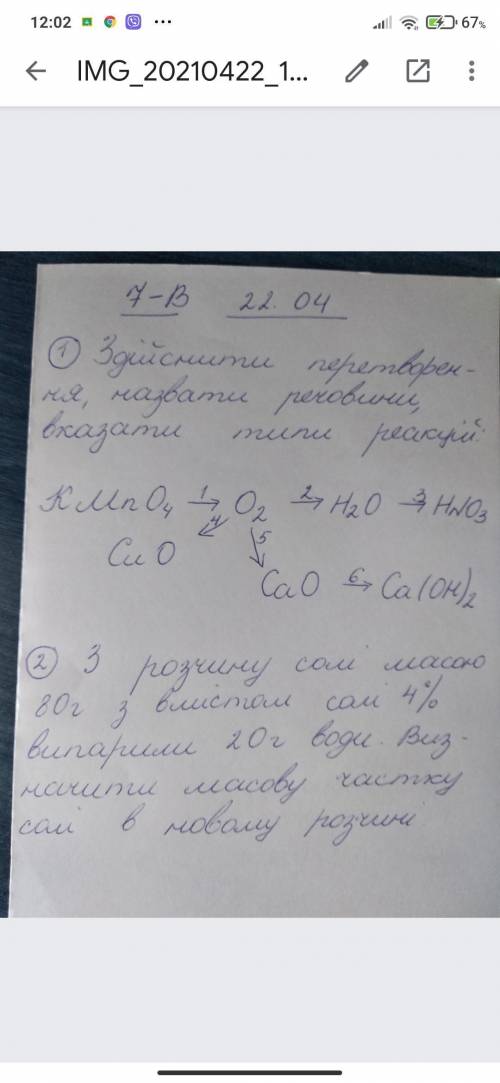 12:02
67%
IMG_20210422_1...
7-В 22.04
① Здійснити перетворен-
ня, назвати речовини,
вказати типи реакцій:
KMnO4 1→ O2 2→ H2O 3→ HNO3
4 5
CuO
CaO 6→ Ca(OH)2
② З розчину солі масою
80г з вмістом солі 4%
випарили 20г води. Виз-
начити масову частку
солі в новому розчині